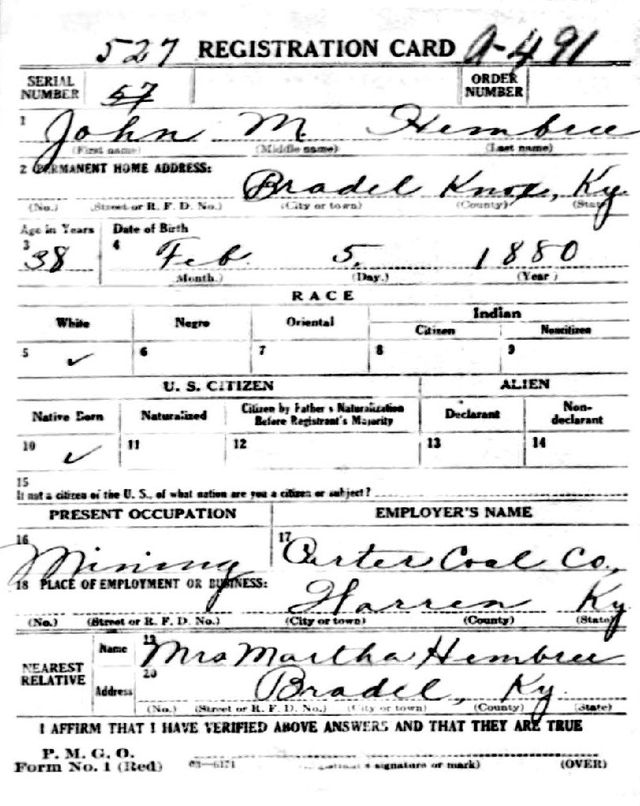 527 REGISTRATION CARD A-491
SERIAL NUMBER 57 ORDER NUMBER
1 John M. Hembree
(First name) (Middle name) (Last name)
2 PERMANENT HOME ADDRESS:
Bradel Knox, Ky.
(No.) (Street or R. F. D. No.) (City or town) (County) (State)
Age in Years Date of Birth
3 38 4 Feb. 5, 1880
(Month.) (Day.) (Year)
RACE
White Negro Oriental Indian
Citizen Noncitizen
5 ✓ 6 7 8 9
U. S. CITIZEN ALIEN
Native Born Naturalized Citizen by Father's Naturalization Before Registrant's Majority Declarant Non-declarant
10 ✓ 11 12 13 14
15
If not a citizen of the U. S., of what nation are you a citizen or subject?
PRESENT OCCUPATION EMPLOYER'S NAME
16 Mining 17 Carter Coal Co,
18 PLACE OF EMPLOYMENT OR BUSINESS:
Warren Ky
(No.) (Street or R. F. D. No.) (City or town) (County) (State)
NEAREST RELATIVE Name 19 Mrs Martha Hembree
Address 20 Bradel, Ky.
(No.) (Street or R. F. D. No.) (City or town) (County) (State)
I AFFIRM THAT I HAVE VERIFIED ABOVE ANSWERS AND THAT THEY ARE TRUE
P. M. G. O.
Form No. 1 (Red) 03—6171 signature or mark) (OVER)